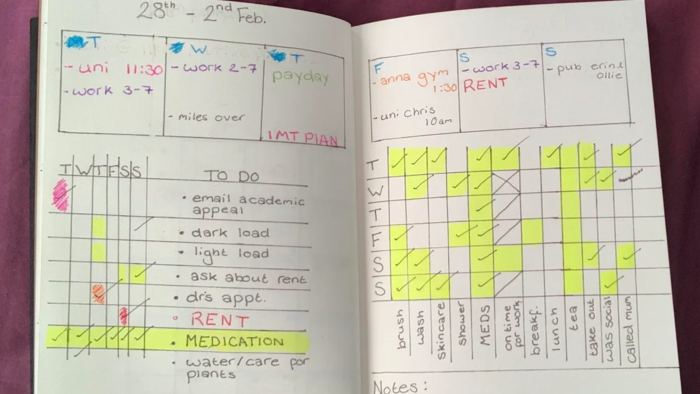 28th - 2nd Feb.
T
- uni 11:30
- work 3-7
W
- work 2-7
- miles over
T
payday
1MT PLAN
F
- anna gym
1:30
- uni chris
10am
S
- work 3-7
RENT
S
- pub erin &
ollie
T W T F S S
TO DO
• email academic
appeal
• dark load
• light load
• ask about rent
• drs appt.
• RENT
• MEDICATION
• water/care for
plants
T
W
T
F
S
S
brush
wash
skincare
shower
MEDS
on time
for work
breakf.
lunch
tea
take out
was social
called mum
Notes: